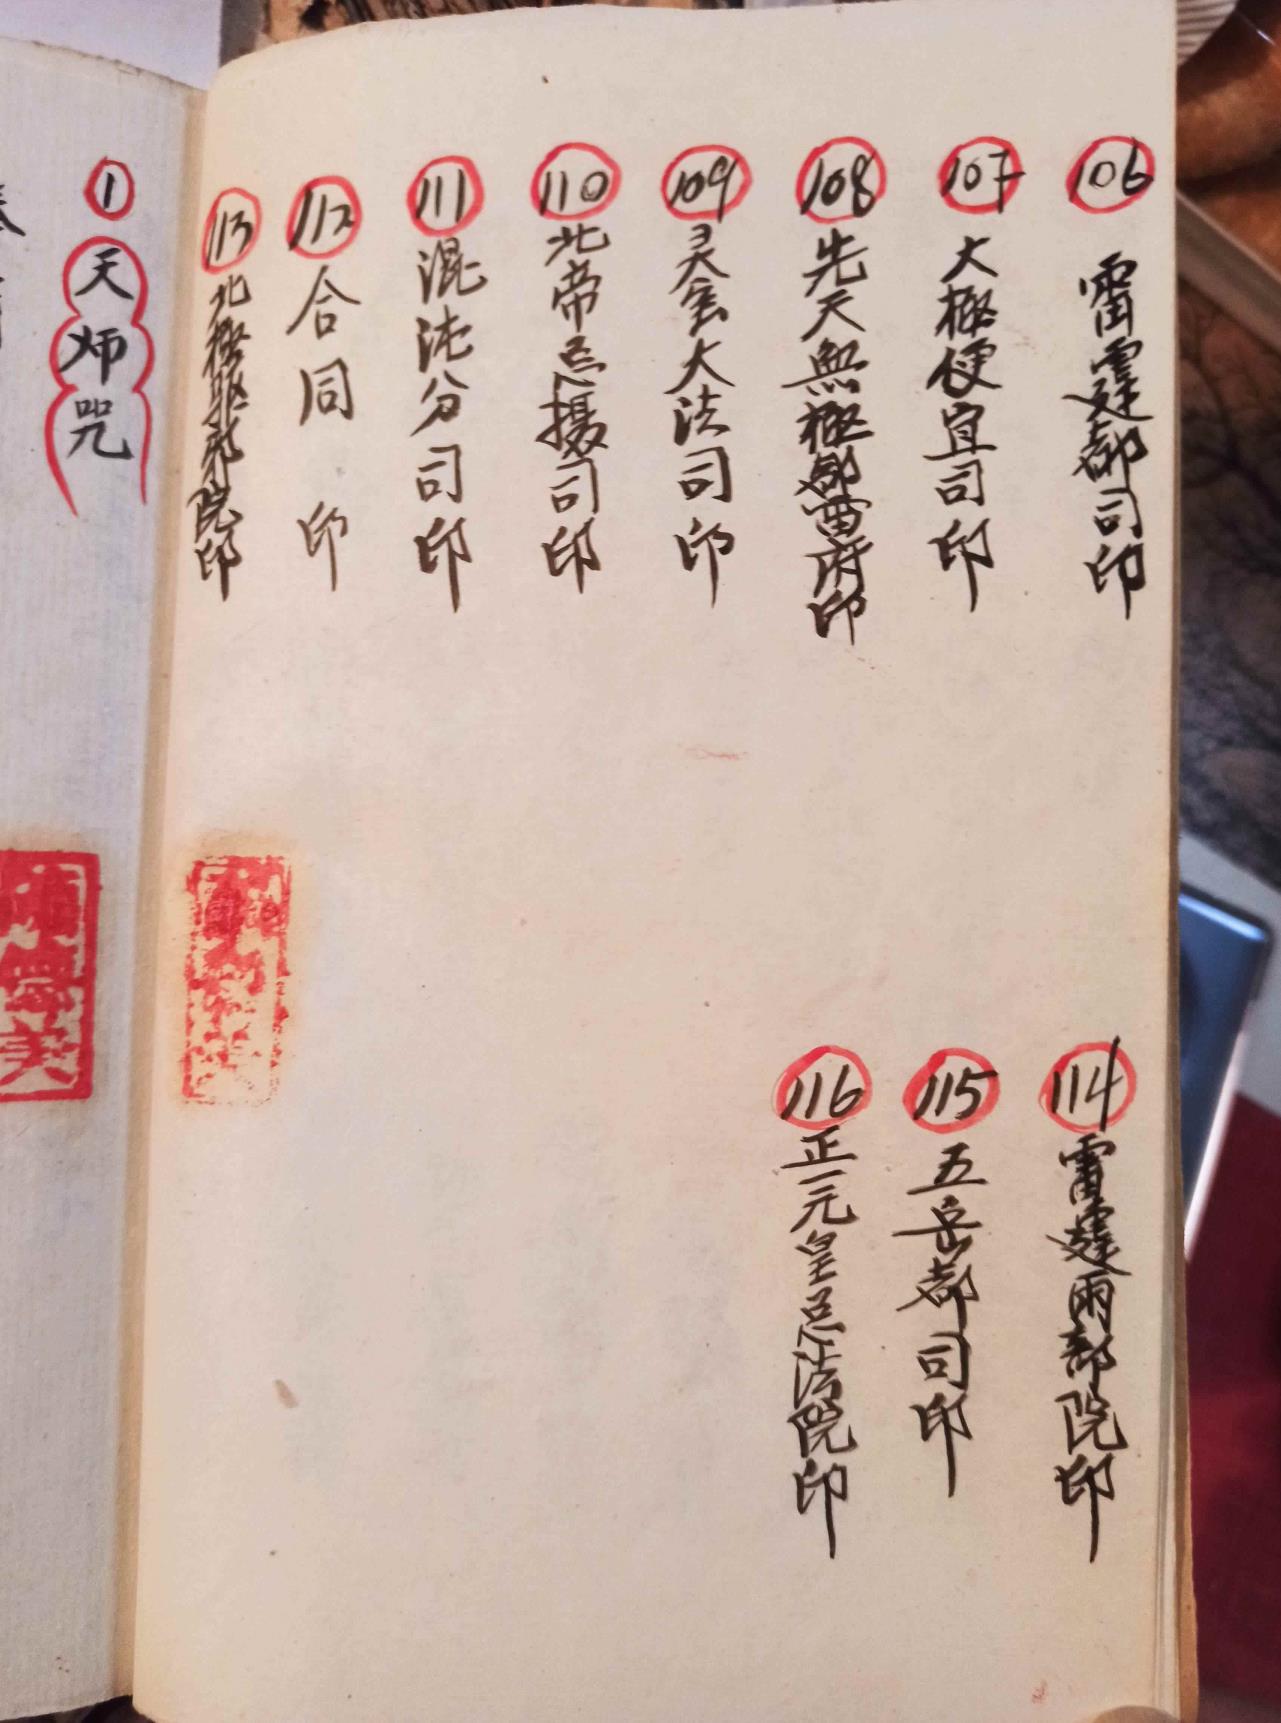 106 雷霆都司印
107 大極便宜司印
108 先天無極都雷府印
109 灵宝大法司印
110 北帝总摄司印
111 混沌分司印
112 合同印
113 北極驱邪院印
114 雷霆雨部院印
115 五岳都司印
116 正一元皇总法院印
1 天师咒